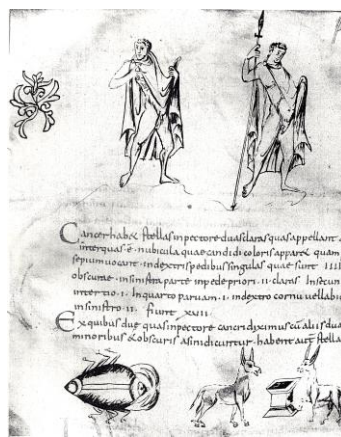 Cancer habet stellas in pectore duas claras quas appellant
inter quas ē nubicula quae candidi coloris apparet quam
sepium uocant in dextris pedibus singulas quae sunt IIII
obscurae in sinistra parte in pede priori II claras In secun
in tertio I In quarto paruam I in dextro cornu uel labiu
in sinistro II fiunt XVIII
Ex quibus due quas in pectore cancri diximus cū aliis dua
minoribus & obscuris asini dicuntur habent aut stella